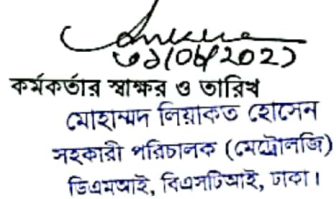 ৩১/০৮/২০২১
কর্মকর্তার স্বাক্ষর ও তারিখ
মোহাম্মদ লিয়াকত হোসেন
সহকারী পরিচালক (মেট্রোলজি)
ডিএমআই, বিএসটিআই, ঢাকা।